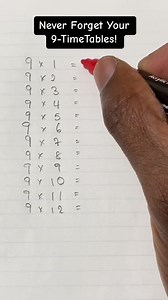 Never Forget Your
9-TimeTables!
9 × 1 =
9 × 2 =
9 × 3 =
9 × 4 =
9 × 5 =
9 × 6 =
9 × 7 =
9 × 8 =
7 × 9 =
9 × 10 =
7 × 11 =
9 × 12 =